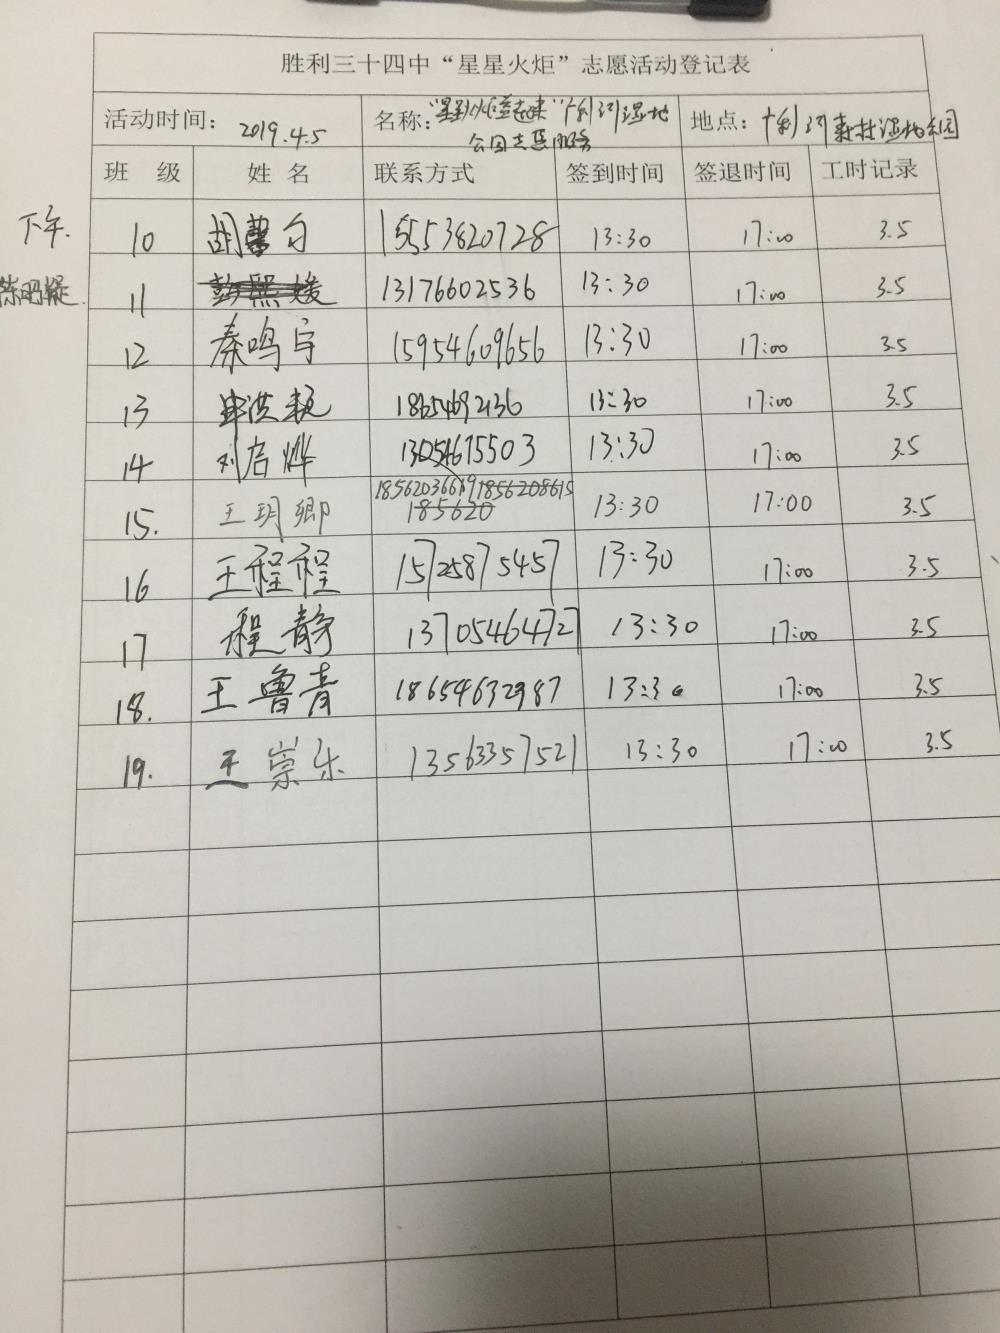 胜利三十四中“星星火炬”志愿活动登记表
活动时间： 2019.4.5 名称： 湿地 地点： 湿地公园
公园志愿服务
班 级 姓 名 联系方式 签到时间 签退时间 工时记录
下午. 10 胡馨 15553820728 13:30 17:00 3.5
11 13176602536 13:30 17:00 3.5
12 秦鸣宇 15954609656 13:30 17:00 3.5
13 18654692136 13:30 17:00 3.5
14 刘启烨 13054675503 13:30 17:00 3.5
15. 王玥卿 13:30 17:00 3.5
185620
16 王程程 15725875457 13:30 17:00 3.5
17 程静 13705464727 13:30 17:00 3.5
18. 王鲁青 18654632987 13:30 17:00 3.5
19. 王崇乐 13563357521 13:30 17:00 3.5